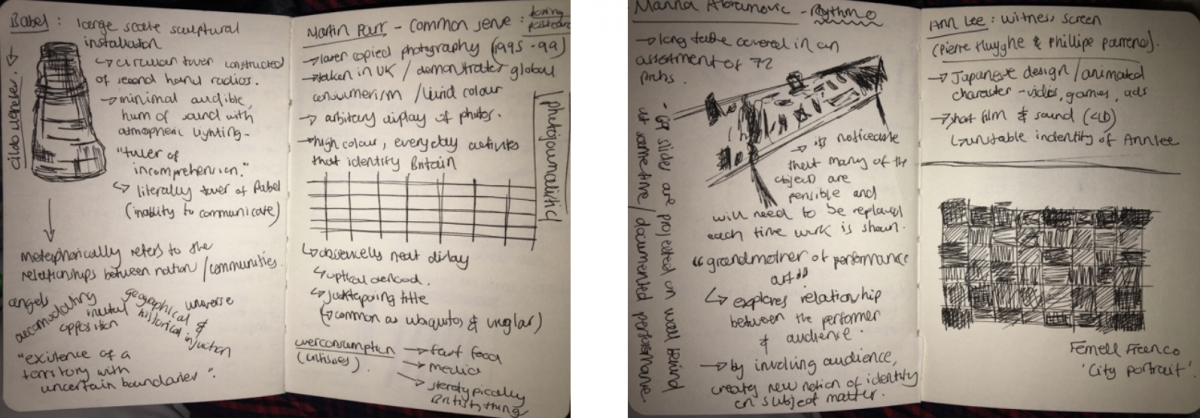 Babel: large scale sculptural
installation
cildo
↳ circular tower constructed
of second hand radios.
→ minimal audible,
hum of sound with
atmospheric lighting.
"tower of
incomprehension."
↳ literally tower of Babel
(inability to communicate)
metaphorically refers to the
relationships between nation / communities.
angels
geographical & universe
historical
opposition
"existence of a
territory with
uncertain boundaries".
Martin Parr - common sense:
→ laser copied photography (1995-99)
→ taken in UK / demonstrates global
consumerism / vivid colour
→ arbitrary display of photos.
→ high colour, everyday
that identify Britain
photojournalistic
↳ neat display
↳ optical
↳ juxtaposing title
(common as & vulgar)
overconsumption → fast food
→ media
→ stereotypically
British thing
Abramovic - Rythm 0
→ long table covered in an
assortment of 72
props.
- 69 slides are projected on wall behind
/ documented performance.
→ is noticeable
that many of the
object are
and
will need to be replaced
each time work is shown.
"grandmother of performance
art"
↳ explores relationship
between the performer
&
audience.
→ by involving audience,
new notion of identity
subject matter.
Ann Lee: witness screen
(Pierre Huyghe & Phillipe Parreno).
→ Japanese design / animated
character - video, games, ads
→ short film & sound
↳ unstable indentity of Annlee
Fernell Franco
'City portrait'